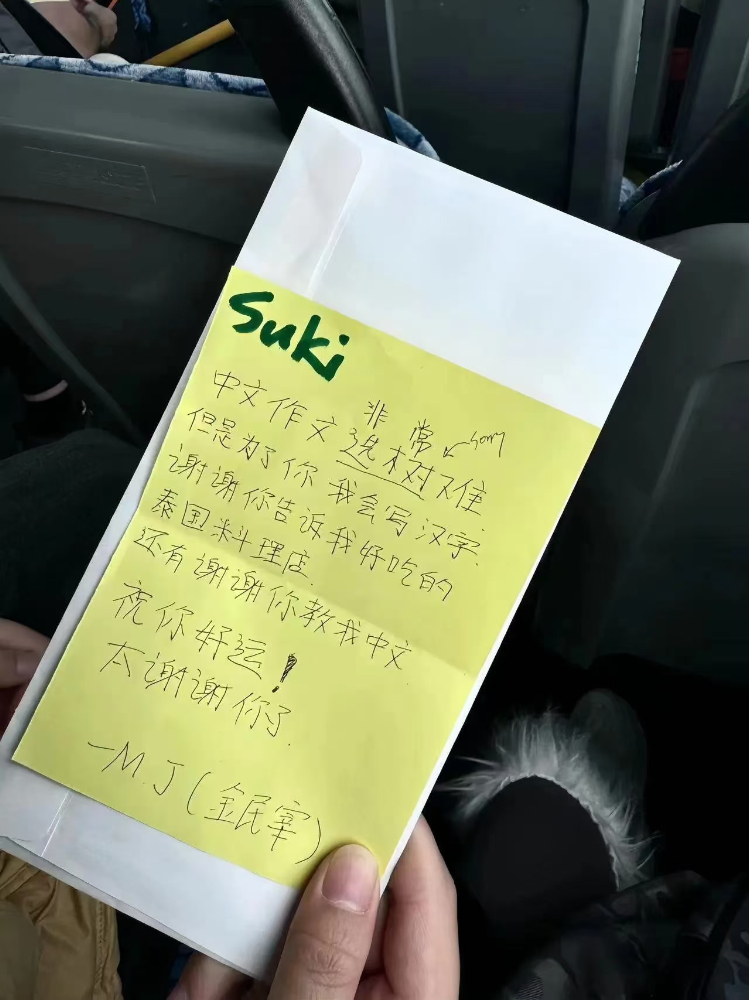 Suki
非常 ← sorry
中文作文选树难
但是为了你 我会写汉字.
谢谢你告诉我好吃的
泰国料理店.
还有谢谢你教我中文
祝你好运!
太谢谢你了.
—M.J (金民宰)